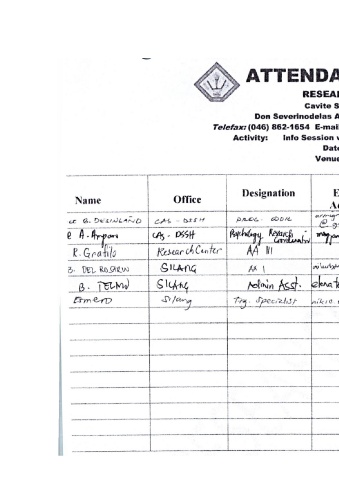 ATTENDA
RESEAR
Cavite S
Don Severinodelas A
Telefax: (046) 862-1654 E-mai
Activity: Info Session v
Date
Venue
Name Office Designation E
A
G. DESINGAÑO CAS - DSSH PROG. COOR
A. CAS - DSSH Psychology Research Coordinator
R. Gratila Research Center AA III
B. DEL ROSARIO SILANG AA I
B. TELMO SILANG Admin Asst. elena
Silang Trg. Specialist